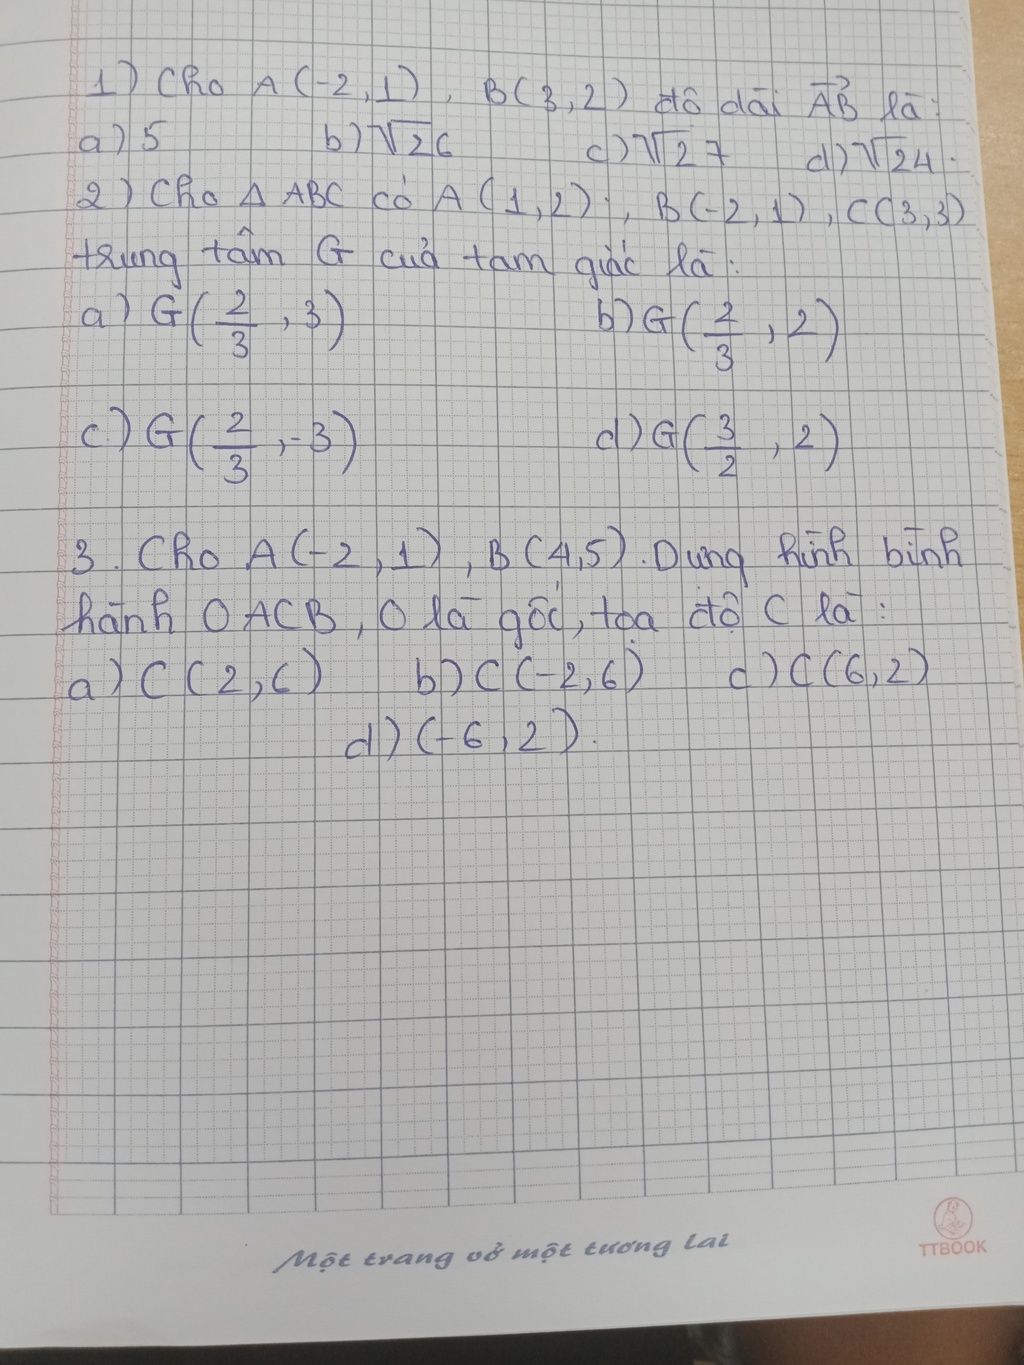 1) Cho A(-2,1), B(3,2) độ dài $\vec{AB}$ là:
a) 5 b) √26 c) √27 d) √24.
2) Cho Δ ABC có A(1,2), B(-2,1), C(3,3)
trung tâm G của tam giác là:
a) G(2/3, 3) b) G(2/3, 2)
c) G(2/3, -3) d) G(3/2, 2)
3. Cho A(-2,1), B(4,5). Dung hình bình
hành OACB, O là gốc, tọa độ C là:
a) C(2,6) b) C(-2,6) c) C(6,2)
d) (-6,2).
Một trang vở một tương lai
TTBOOK